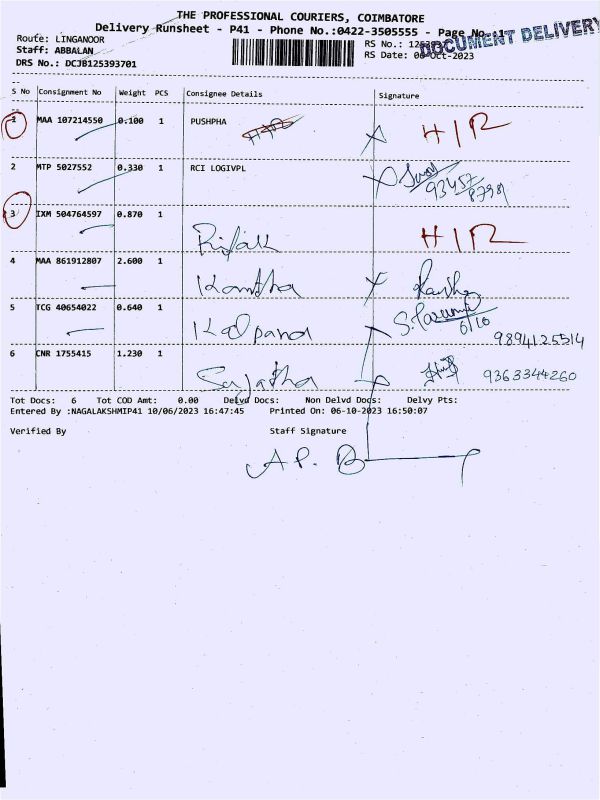 THE PROFESSIONAL COURIERS, COIMBATORE
Delivery Runsheet - P41 - Phone No.:0422-3505555 - Page No.:1
DOCUMENT DELIVERY
Route: LINGANOOR
Staff: ABBALAN
DRS No.: DCJB125393701
RS No.:
RS Date: 06-Oct-2023
S No Consignment No Weight PCS Consignee Details Signature
1 MAA 107214550 0.100 1 PUSHPHA H/R
2 MTP 5027552 0.330 1 RCI LOGIVPL
3 IXM 504764597 0.870 1 H/R
4 MAA 861912807 2.600 1 Kantha
5 TCG 40654022 0.640 1 Kalpana 6/10 9894125514
6 CNR 1755415 1.230 1 Sujatha 9363344260
Tot Docs: 6 Tot COD Amt: 0.00 Delvd Docs: Non Delvd Docs: Delvy Pts:
Entered By :NAGALAKSHMIP41 10/06/2023 16:47:45 Printed On: 06-10-2023 16:50:07
Verified By Staff Signature
A.P.